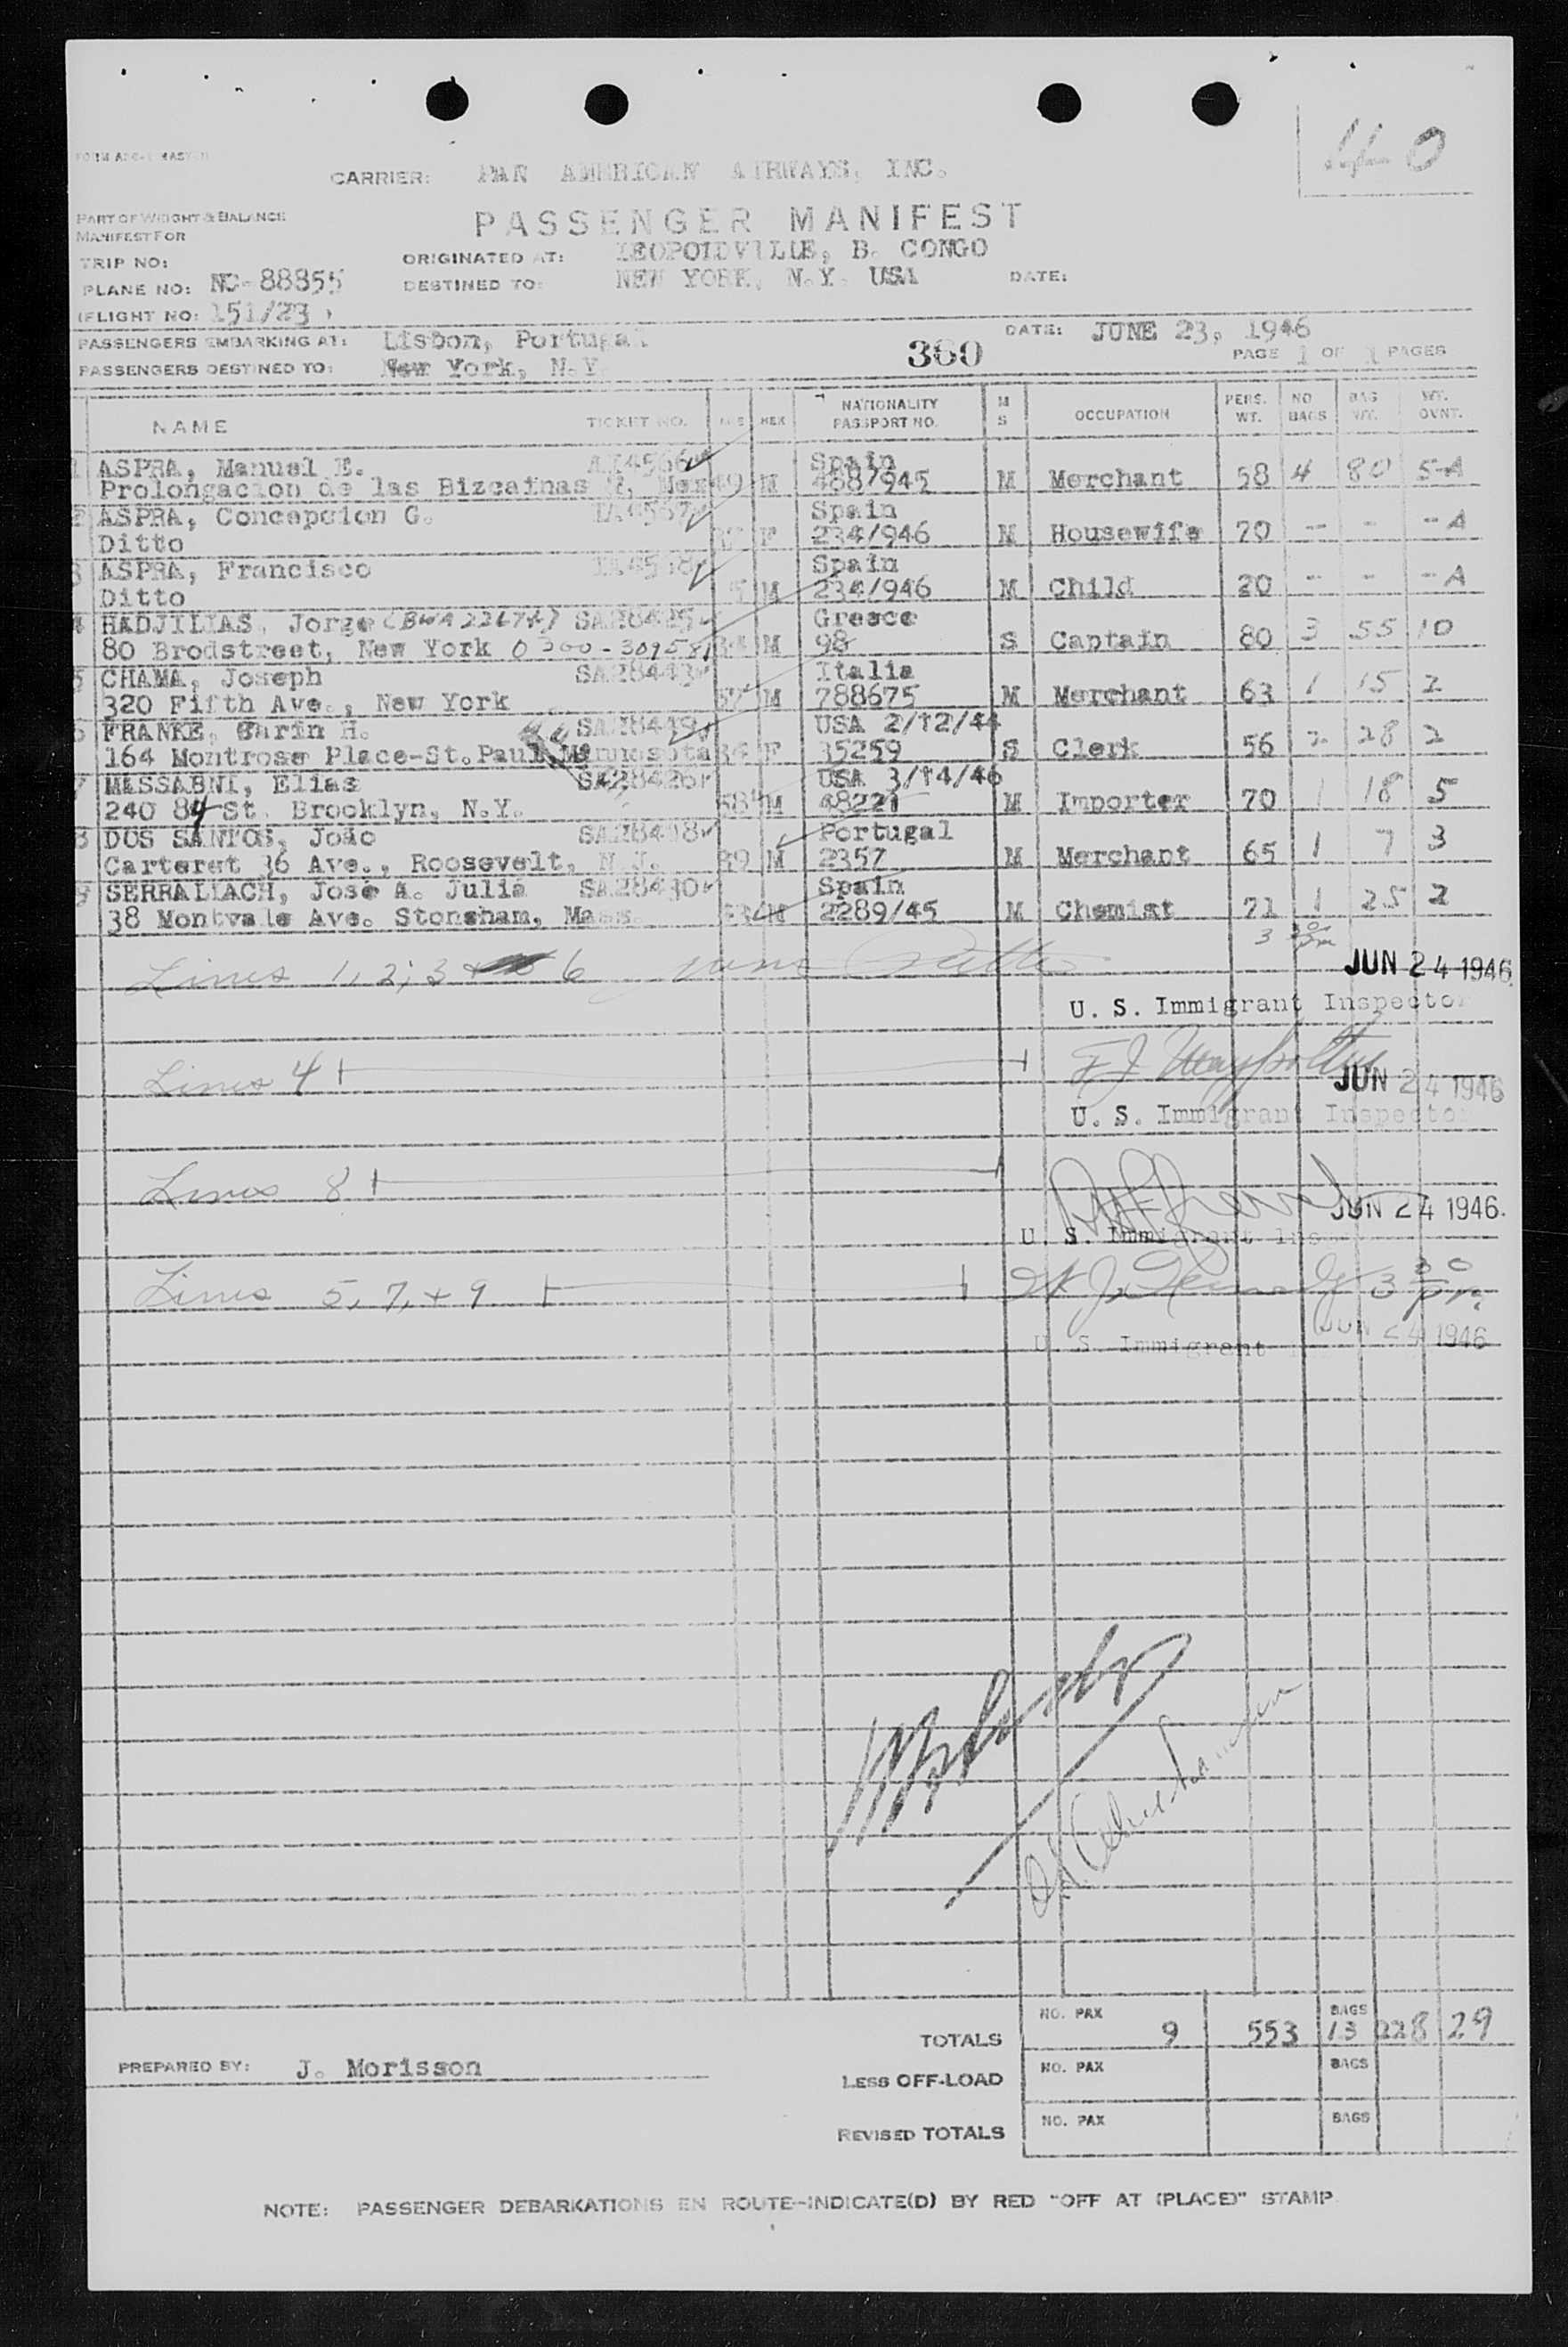 4 0
CARRIER: PAN AMERICAN AIRWAYS, INC.
PART OF WEIGHT & BALANCE
MANIFEST FOR
PASSENGER MANIFEST
TRIP NO:
ORIGINATED AT: LEOPOLDVILLE, B. CONGO
PLANE NO: NC-88855
DESTINED TO: NEW YORK, N.Y. USA DATE:
(FLIGHT NO: 151/23 )
PASSENGERS EMBARKING AT: Lisbon, Portugal DATE: JUNE 23, 1946
PASSENGERS DESTINED TO: New York, N.Y. 360 PAGE 1 OF 1 PAGES
NAME TICKET NO. AGE SEX NATIONALITY PASSPORT NO. M S OCCUPATION PERS. WT. NO. BAGS BAG WT. WT. OVNT.
1 ASPRA, Manuel E. Spain
Prolongacion de las Bizcainas M 468/945 M Merchant 58 4 80 5-A
2 ASPRA, Concepcion G. Spain
Ditto F 234/946 M Housewife 70 - - - -A
3 ASPRA, Francisco Spain
Ditto M 234/946 M Child 20 - - -A
4 HADJILIAS, Jorge SA28425 Greece
80 Brodstreet, New York 0300-309581 M 98 S Captain 80 3 55 10
5 CHAMA, Joseph SA28443 Italia
320 Fifth Ave., New York M 788675 M Merchant 63 1 15 2
6 FRANKE, Carin H. SA28419 USA 2/12/44
164 Montrose Place-St.Paul Minnesota 34 F 35259 S Clerk 56 2 28 2
7 MASSABNI, Elias SA28426 USA 3/14/46
240 84 St. Brooklyn, N.Y. 58 M 48221 M Importer 70 1 18 5
8 DOS SANTOS, João Portugal
Carteret 36 Ave., Roosevelt, N.J. 39 M 2357 M Merchant 65 1 7 3
9 SERRALLACH, José A. Julia SA28430 Spain
38 Montvale Ave. Stoneham, Mass. M 2289/45 M Chemist 71 1 25 2
3 30 pm
Lines 1, 2, 3 + 6 JUN 24 1946
U. S. Immigrant Inspector
Lines 4
JUN 24 1946
U. S. Immigrant Inspector
Lines 8
JUN 24 1946
U. S. Immigrant Ins
Lines 5, 7, + 9 3 30 pm
JUN 24 1946
U. S. Immigrant
TOTALS NO. PAX 9 553 BAGS 13 228 29
PREPARED BY: J. Morisson
LESS OFF-LOAD NO. PAX BAGS
REVISED TOTALS NO. PAX BAGS
NOTE: PASSENGER DEBARKATIONS EN ROUTE-INDICATE(D) BY RED "OFF AT (PLACE)" STAMP